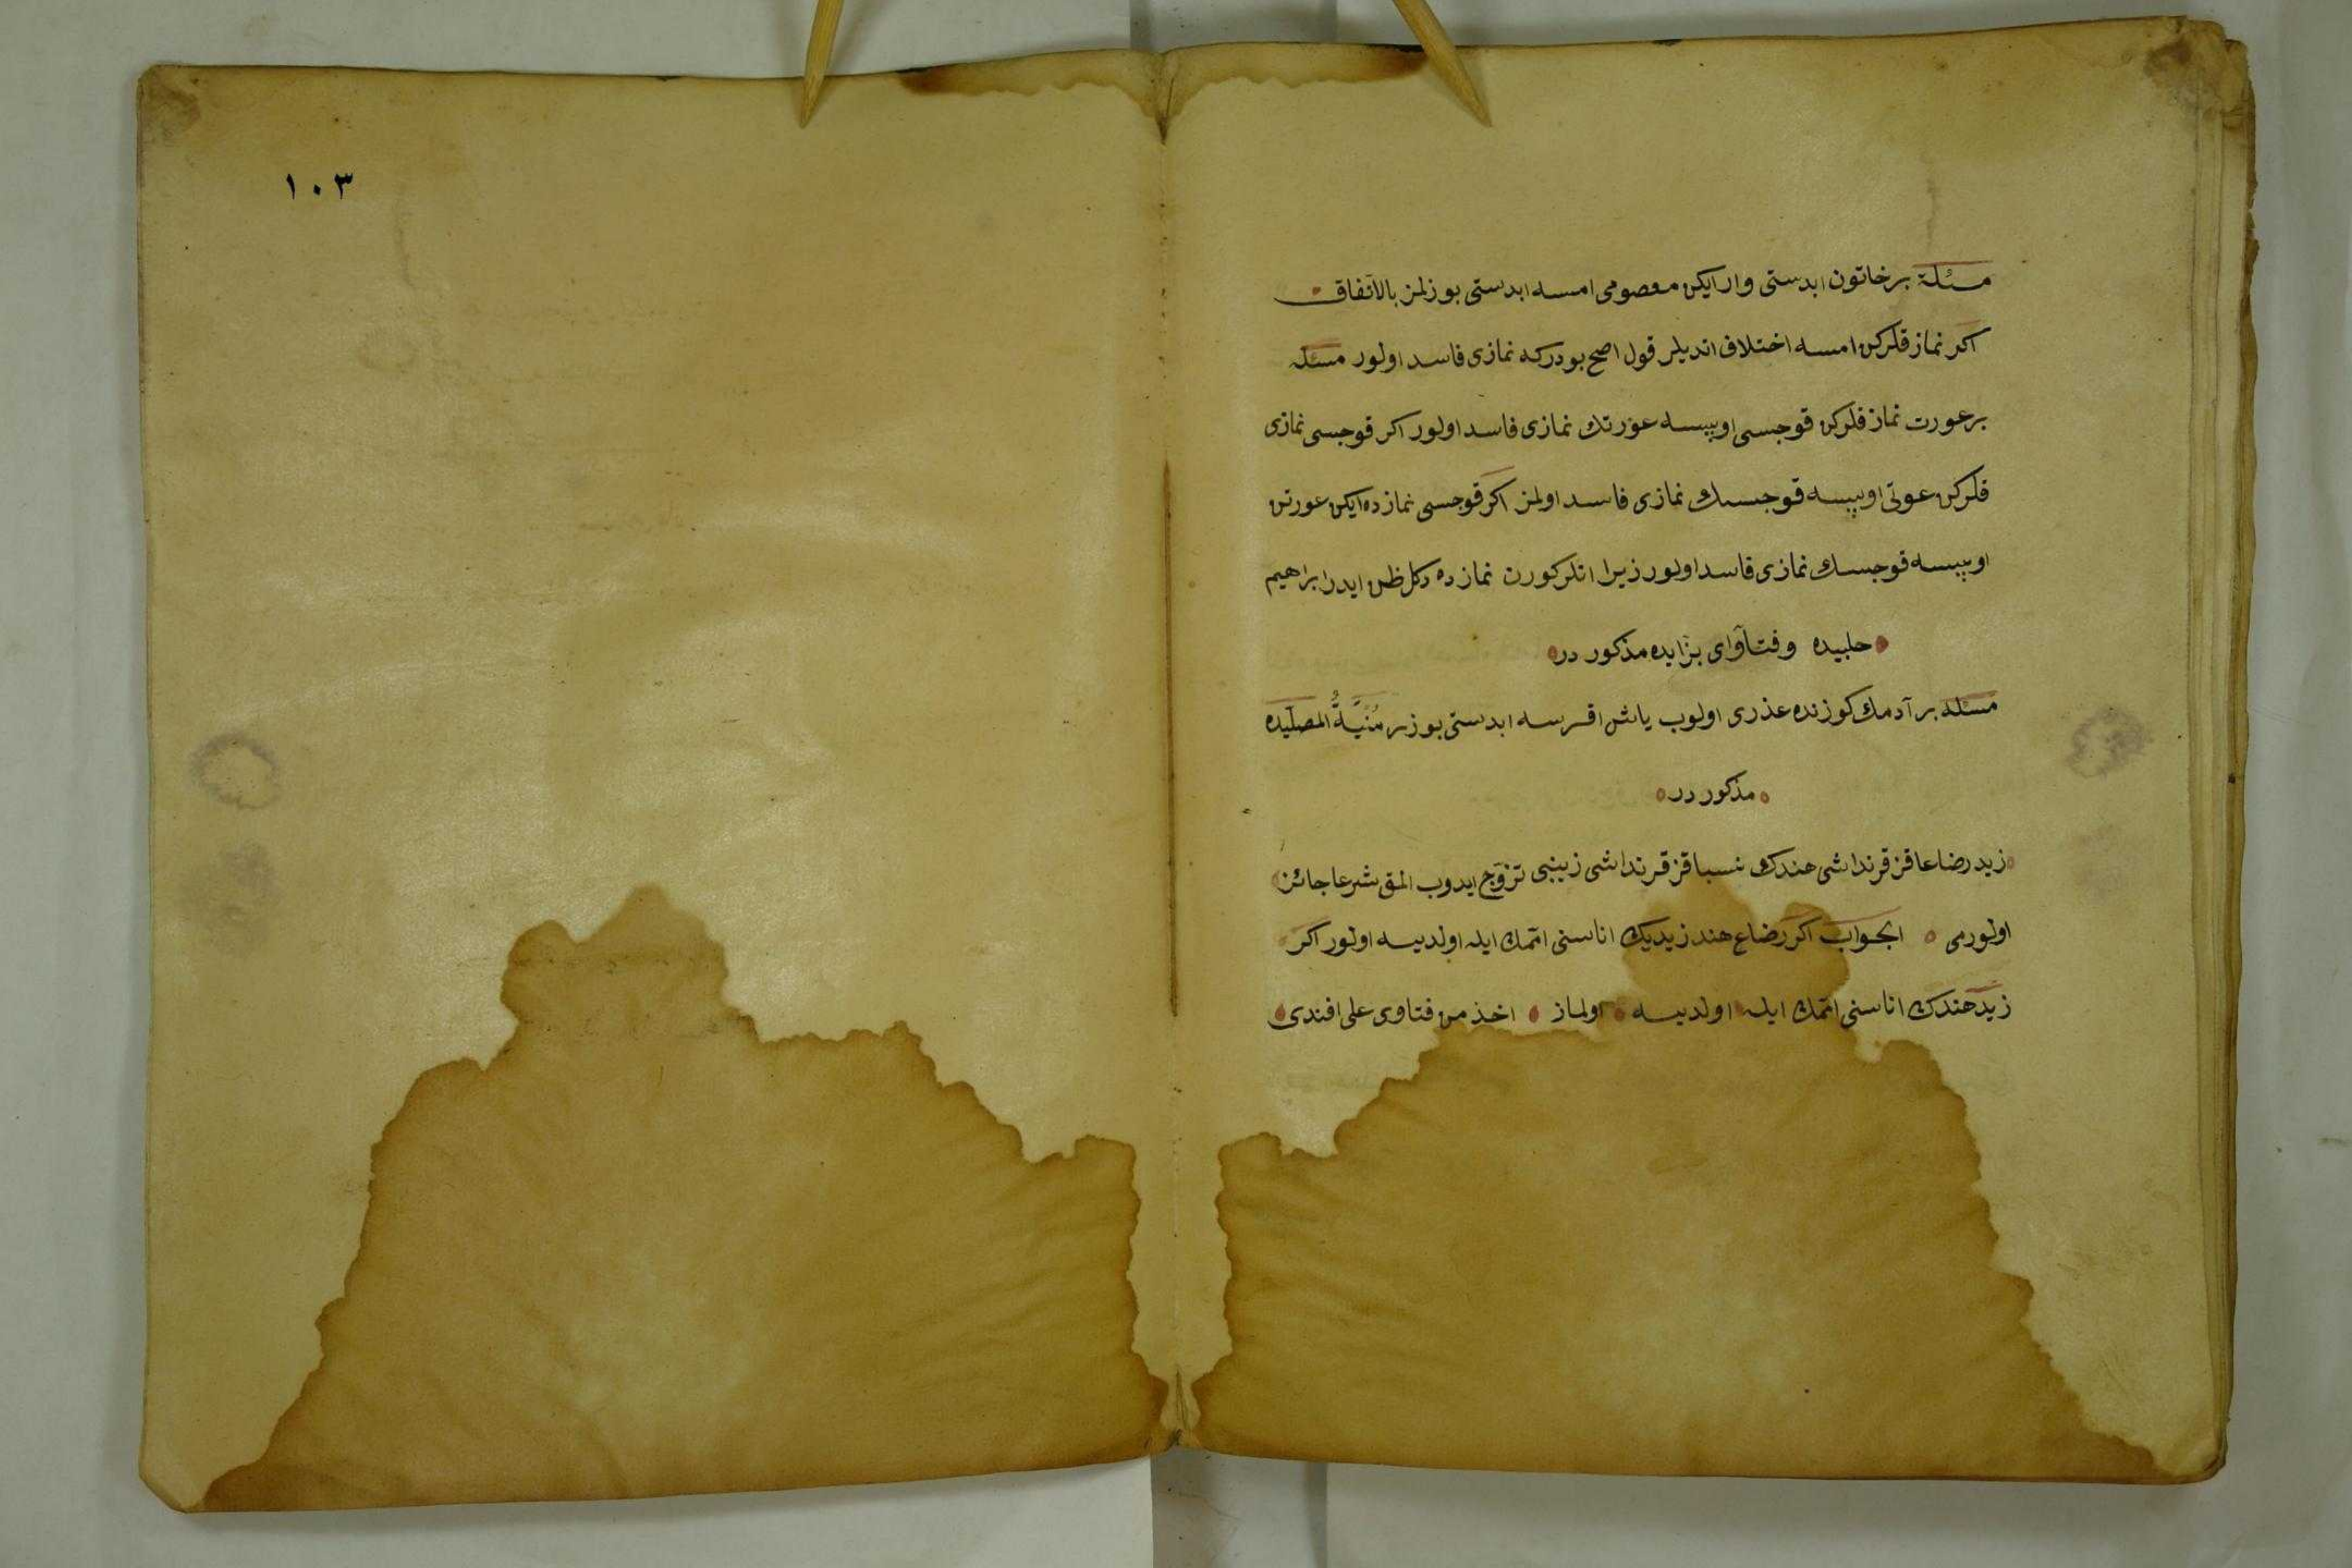 مسئلة برخاتون ابدستی وار ایکن معصومی امسه ابدستی بوزلمز بالاتفاق
اکر نماز قلرکن امسه اختلاف اندیلر قول اصح بودرکه نمازی فاسد اولور مسئله
برعورت نماز قلرکن قوجسی اوپسه عورتك نمازی فاسد اولور اکر قوجسی نمازی
قلرکن عوتی اوپسه قوجسنك نمازی فاسد اولمز اکر قوجسی نمازده ایکن عورتن
اوپسه قوجسنك نمازی فاسد اولور زیرا انلر کورن نمازده دکل ظن ایدر ابراهیم
حلبیده وفتاوای بزایده مذکور در
مسئله بر آدمك کوزنده عذری اولوب یاش اقرسه ابدستی بوزر مُنْیَةُ المصلیده
مذکور در
زید رضاعا قز قرنداشی هندك نسبا قز قرنداشی زینبی تزوّج ایدوب المق شرعا جائز
اولورمی الجواب اکر رضاع هند زیدیك اناسنی اتمك ایله اولدیسه اولور اکر
زید هندك اناسنی اتمك ایله اولدیسه اولماز اخذ من فتاوی علی افندی
١٠٣